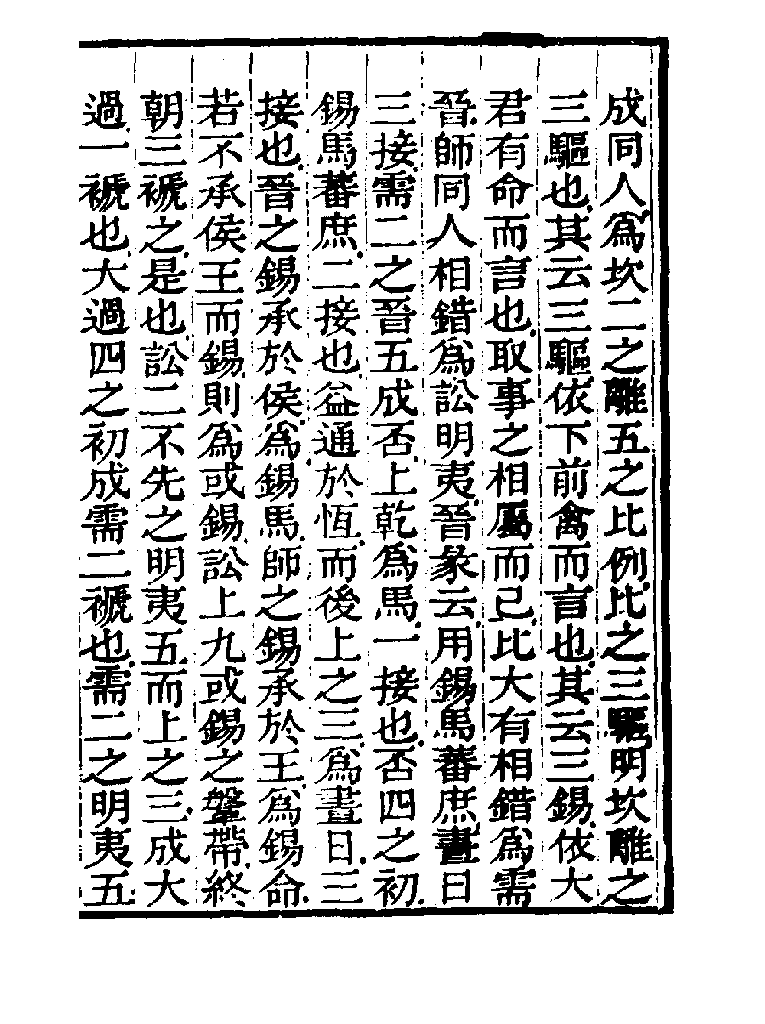 成同人爲坎二之離五之比例比之三驅明坎離之
三驅也其云三驅依下前禽而言也其云三錫依大
君有命而言也取事之相屬而已比大有相錯爲需
晉師同人相錯爲訟明夷晉彖云用錫馬蕃庶晝日
三接需二之晉五成否上乾爲馬一接也否四之初
錫馬蕃庶二接也益通於恆而後上之三爲晝日三
接也晉之錫承於侯爲錫馬師之錫承於王爲錫命
若不承侯王而錫則爲或錫訟上九或錫之鞶帶終
朝三褫之是也訟二不先之明夷五而上之三成大
過一褫也大過四之初成需二褫也需二之明夷五